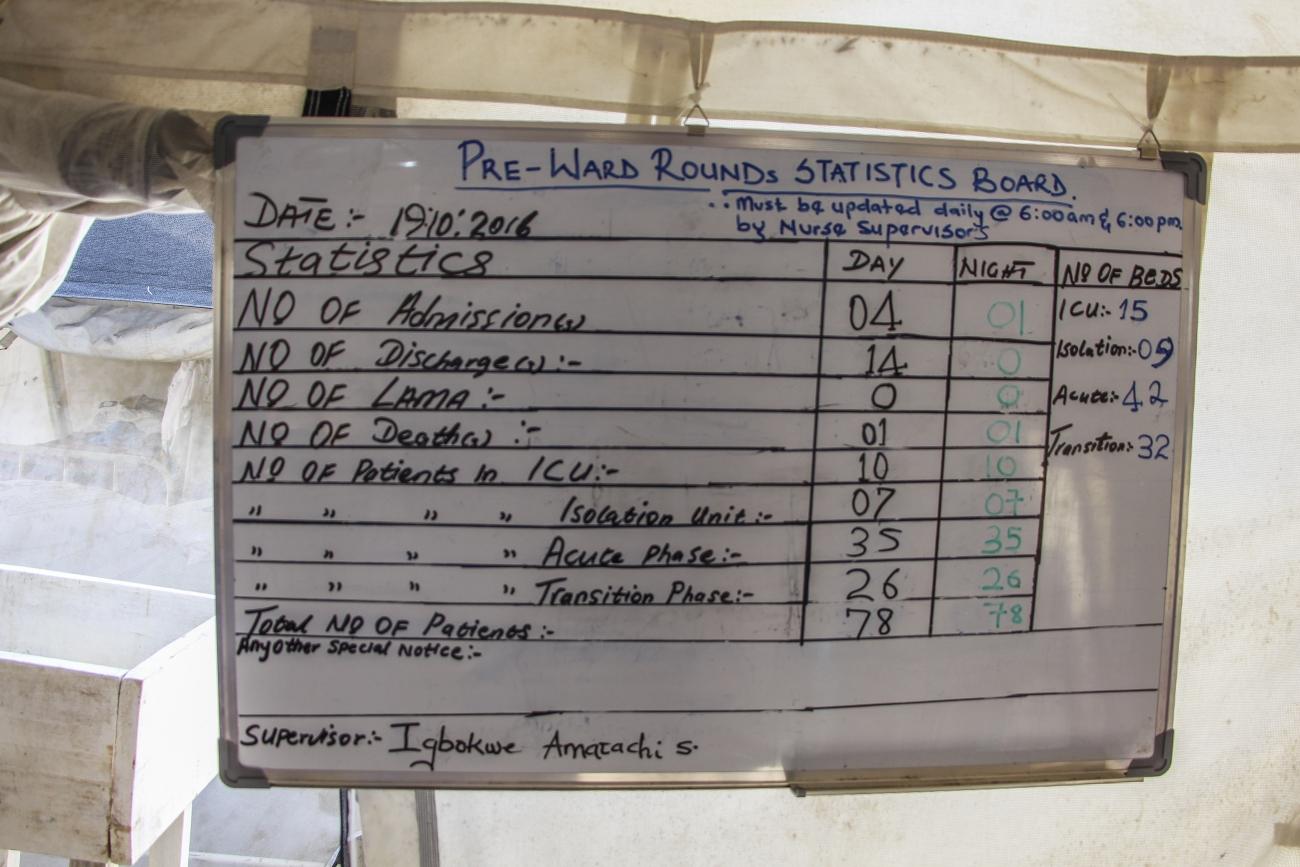 PRE-WARD ROUNDS STATISTICS BOARD.
DATE:- 19:10:2016
Must be updated daily @ 6:00am & 6:00pm.
by Nurse Supervisors
Statistics DAY NIGHT NO OF BEDS
NO OF Admission(s) 04 01 ICU:- 15
NO OF Discharge(s):- 14 0 Isolation:- 09
NO OF LAMA:- 0 0 Acute:- 42
NO OF Death(s):- 01 01 Transition:- 32
NO OF Patients In ICU:- 10 10
" " " " Isolation Unit:- 07 07
" " " " Acute Phase:- 35 35
" " " " Transition Phase:- 26 26
Total NO OF Patients:- 78 78
Any Other Special Notice:-
Supervisor:- Igbokwe Amarachi S.